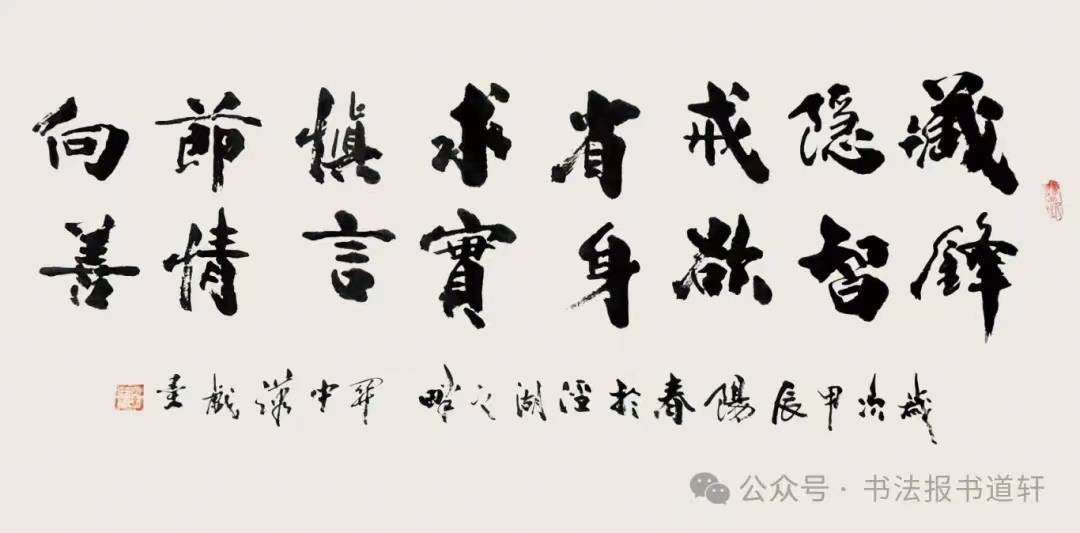 藏鋒
隐智
戒欲
省身
求實
慎言
節情
向善
歲次甲辰陽春於涇湖之畔 關中漢戲書
公众号 · 书法报书道轩